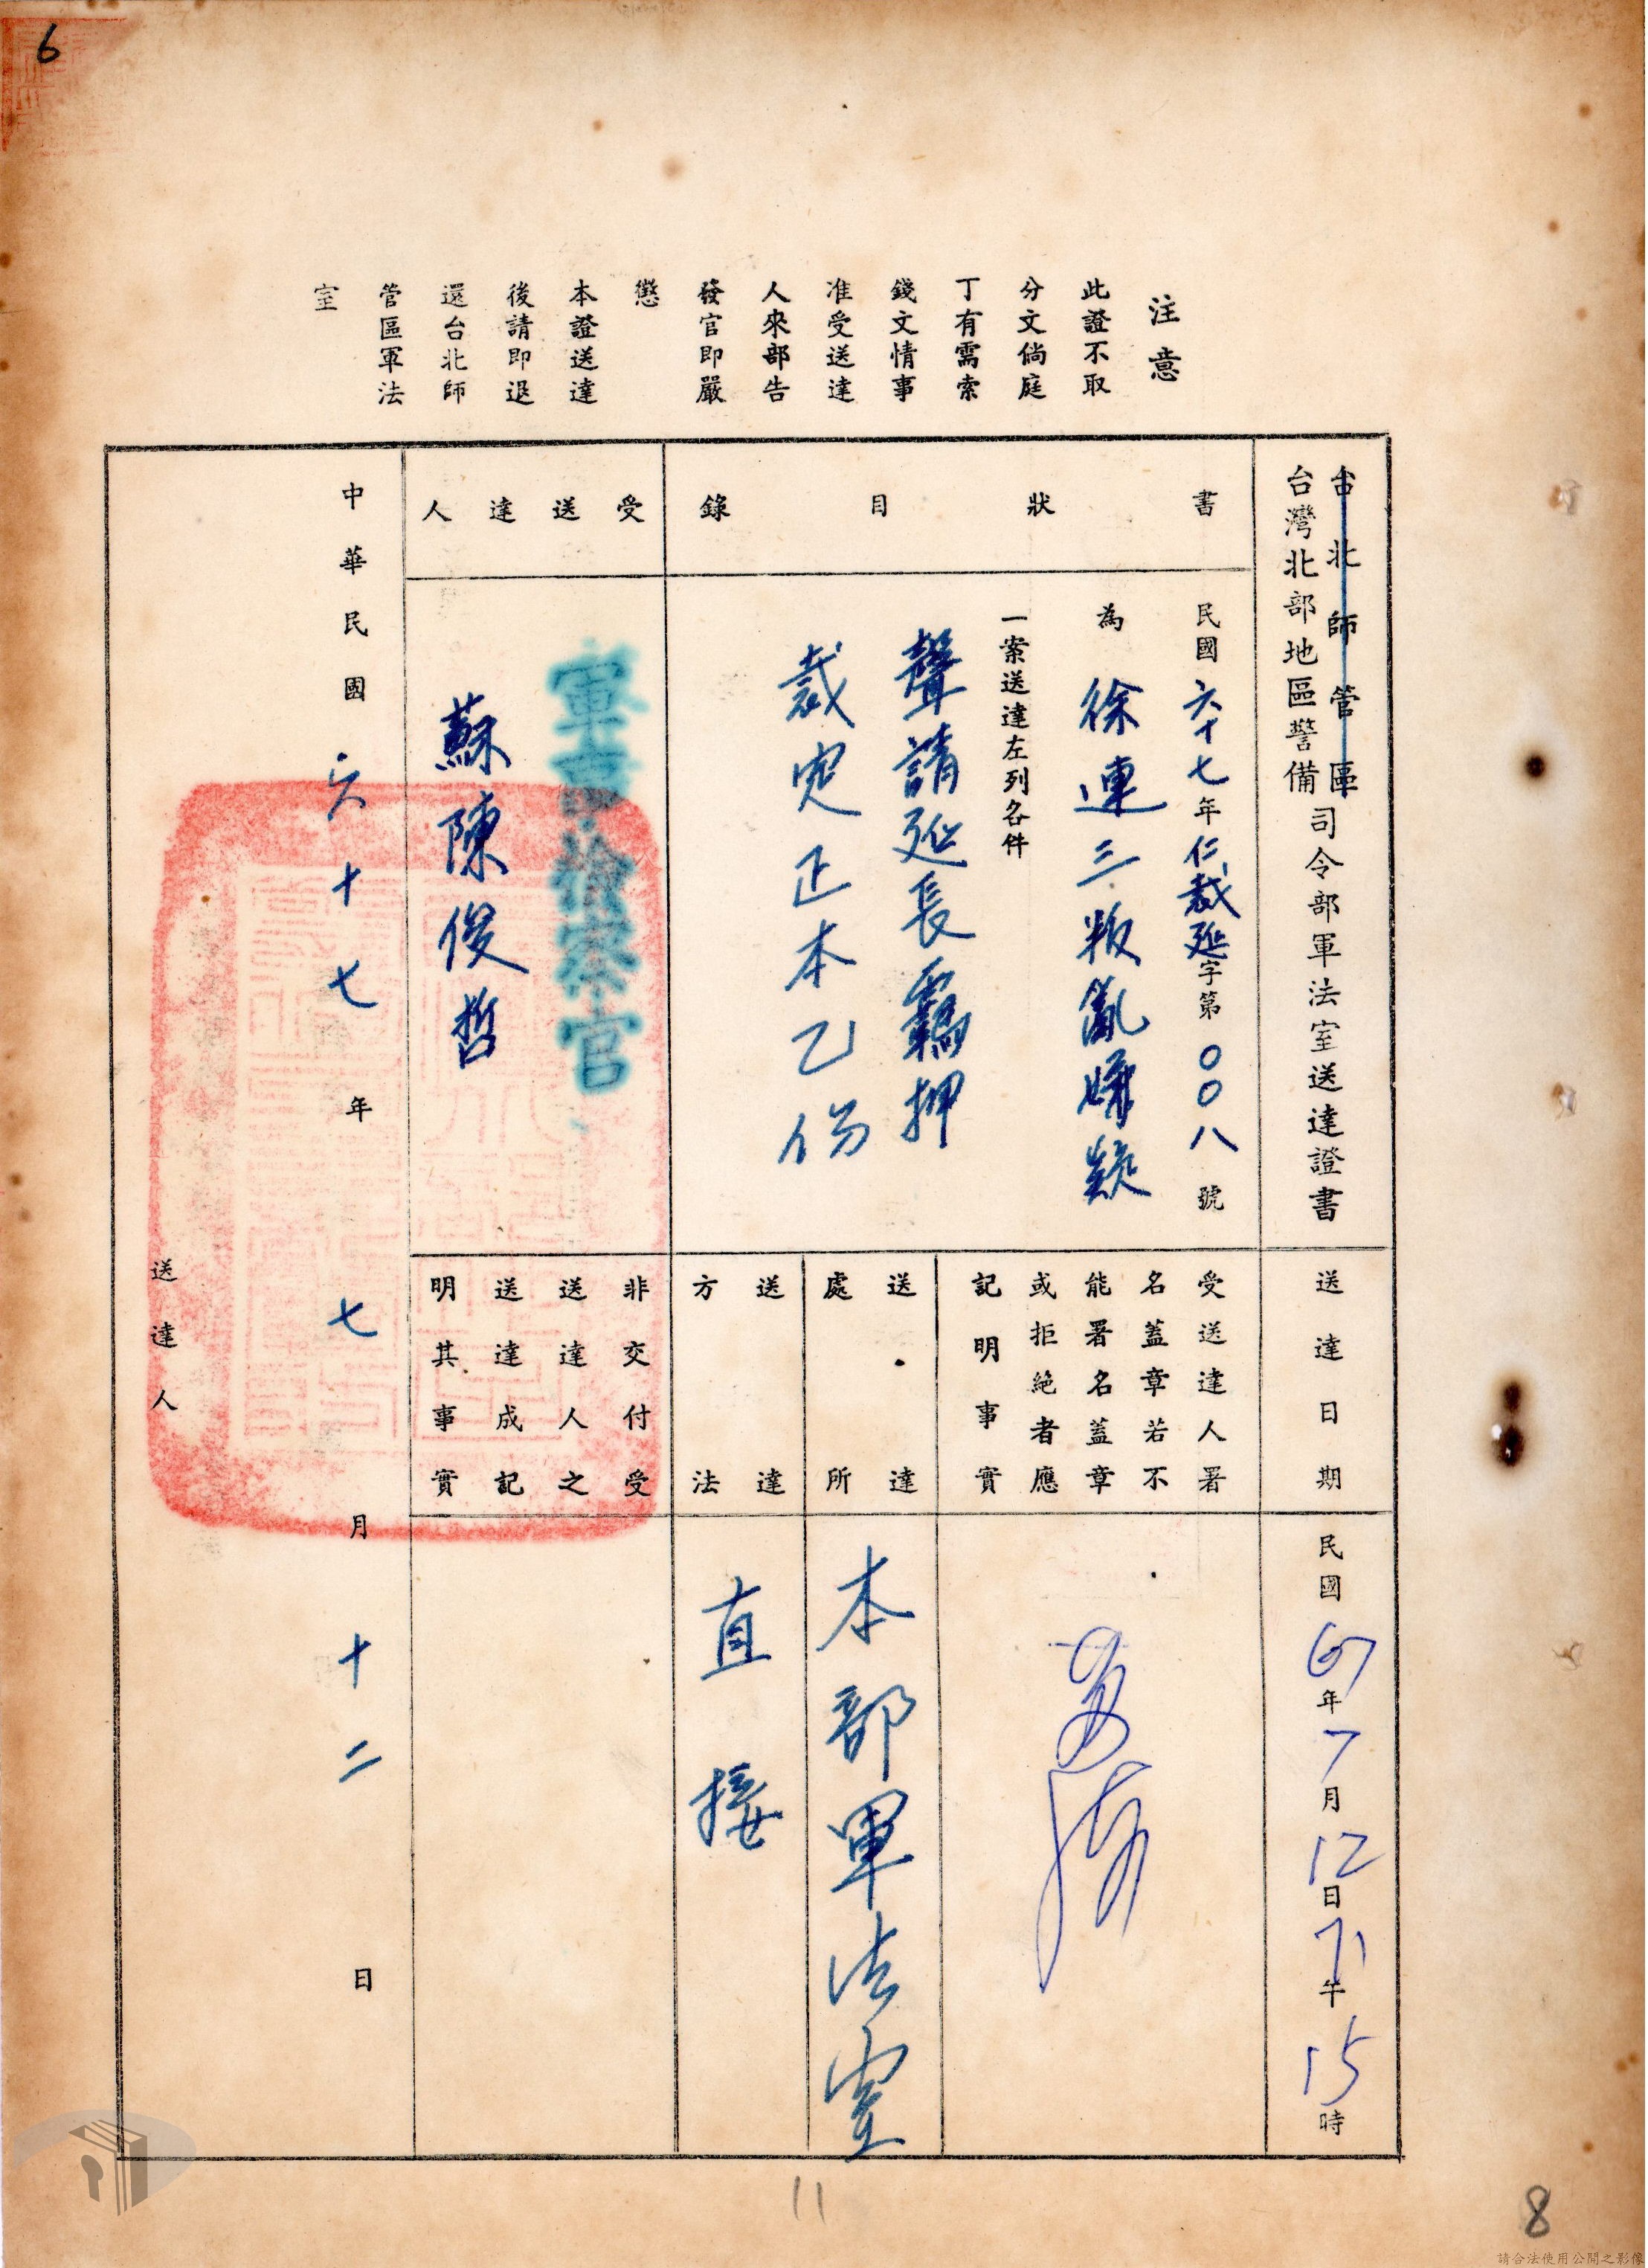 6
注意
此證不取
分文倘庭
丁有需索
錢文情事
准受送達
人來部告
發官即嚴
懲
本證送達
後請即退
還台北師
管區軍法
室
台北師管區
台灣北部地區警備
司令部軍法室送達證書
書狀目錄
民國六十七年仁裁延字第〇〇八號
為徐連三叛亂嫌疑
一案送達左列各件
聲請延長羈押
裁定正本乙份
受送達人
軍事檢察官
蘇陳俊哲
送達日期
民國67年7月12日下午15時
受送達人署
名蓋章若不
能署名蓋章
或拒絕者應
記明事實
送達
處所
本部軍法室
送達
方法
直接
非交付受
送達人之
送達成記
明其事實
中華民國六十七年七月十二日
送達人
11
8
請合法使用公開之影像